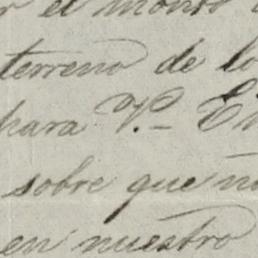 el monto
terreno de lo
para V. E
sobre que no
en nuestro